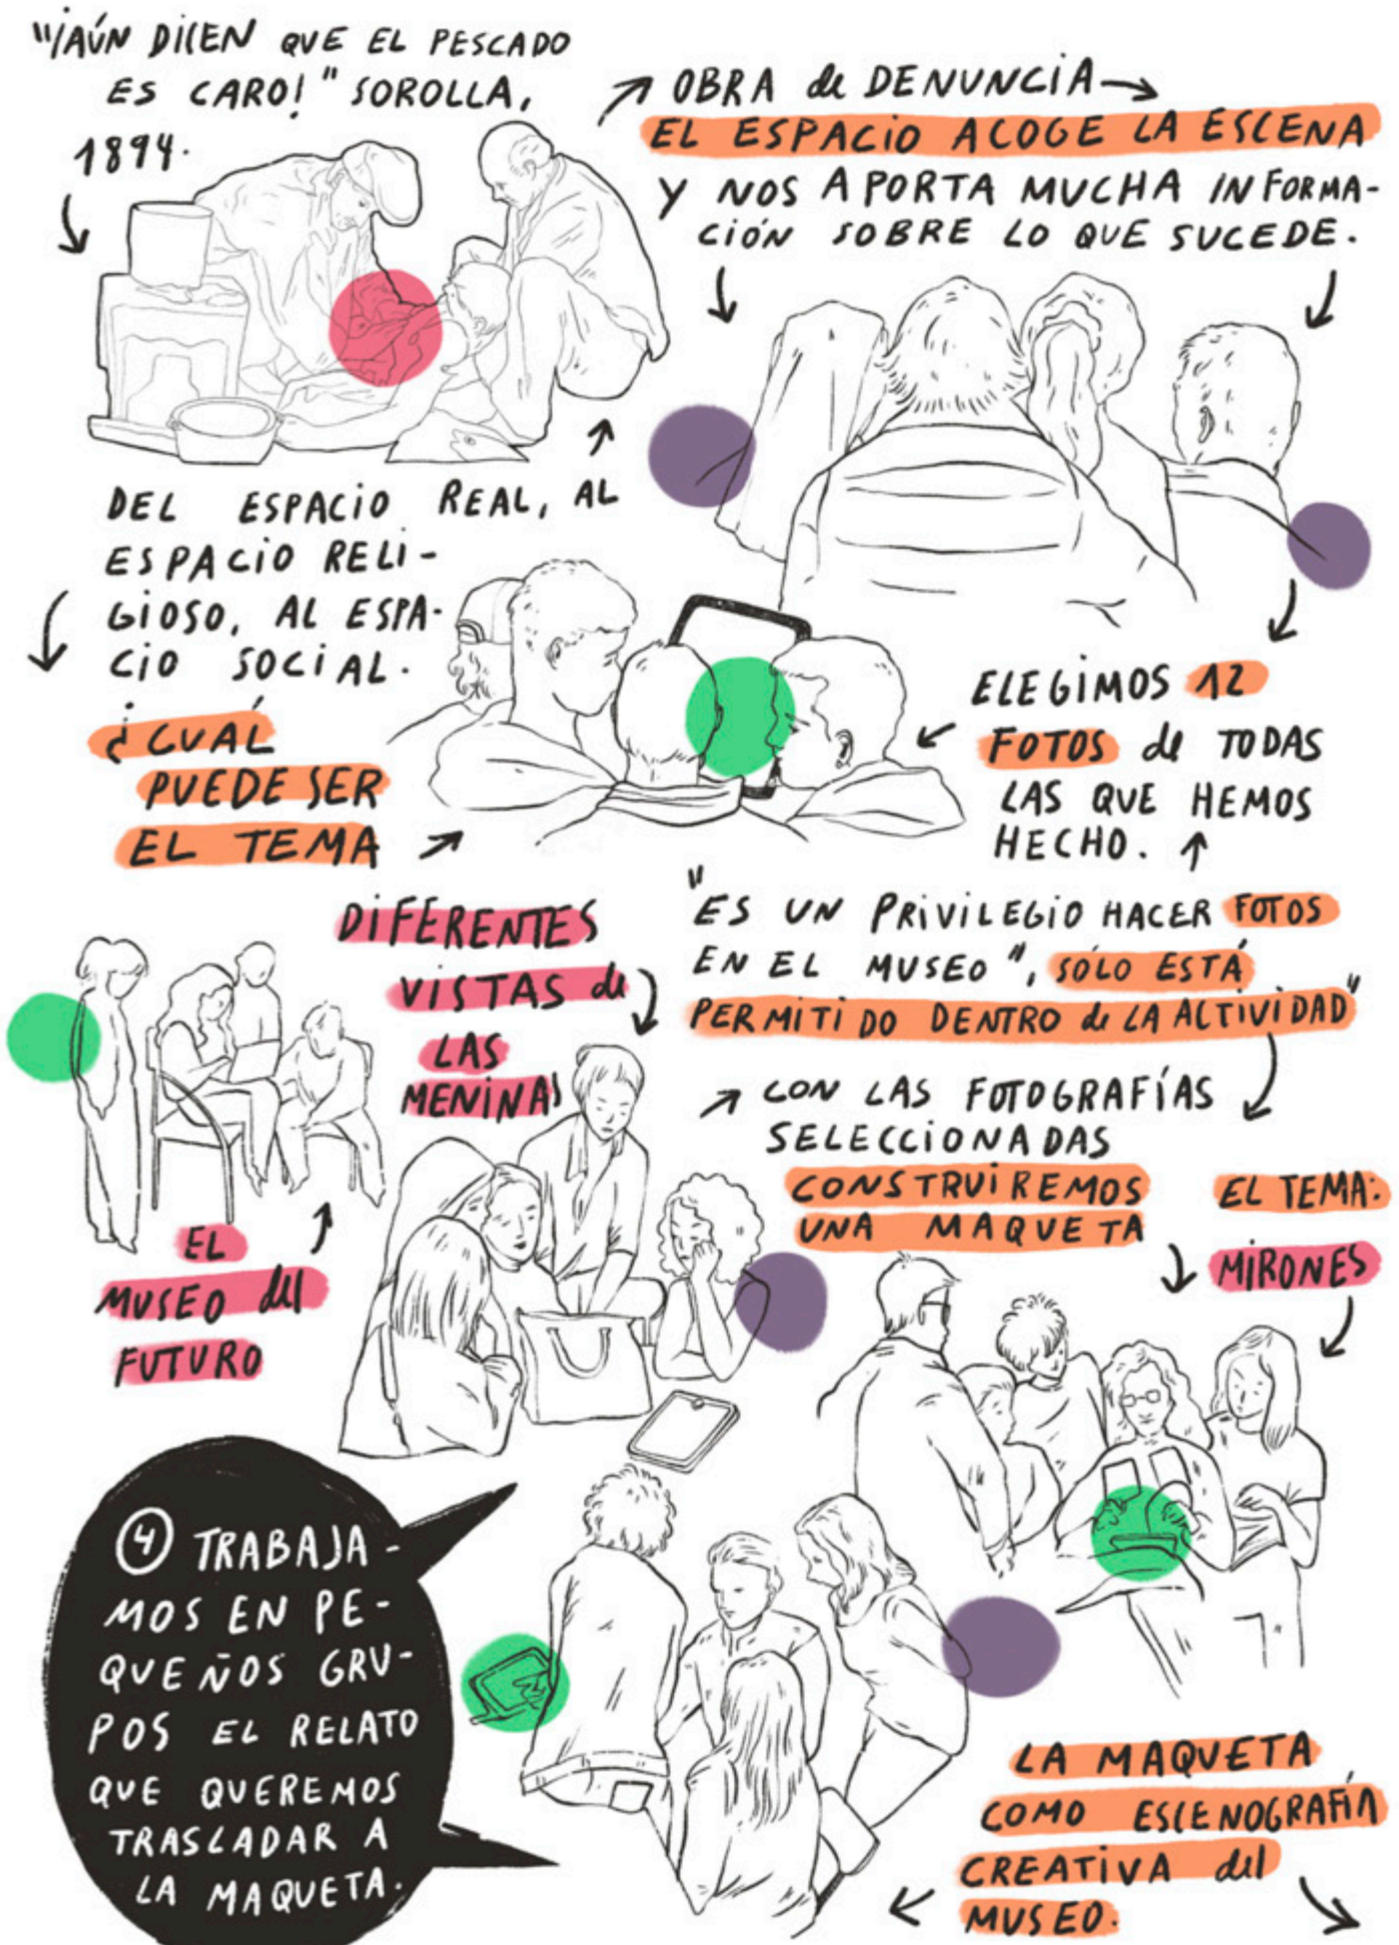 "¡AÚN DICEN QUE EL PESCADO
ES CARO!" SOROLLA,
1894.
OBRA de DENUNCIA
EL ESPACIO ACOGE LA ESCENA
Y NOS APORTA MUCHA INFORMA-
CIÓN SOBRE LO QUE SUCEDE.
DEL ESPACIO REAL, AL
ESPACIO RELI-
GIOSO, AL ESPA-
CIO SOCIAL.
¿CUÁL
PUEDE SER
EL TEMA
ELEGIMOS 12
FOTOS de TODAS
LAS QUE HEMOS
HECHO.
"ES UN PRIVILEGIO HACER FOTOS
EN EL MUSEO", SÓLO ESTÁ
PERMITIDO DENTRO de LA ACTIVIDAD"
DIFERENTES
VISTAS de
LAS
MENINAS
CON LAS FOTOGRAFÍAS
SELECCIONADAS
CONSTRUIREMOS
UNA MAQUETA
EL TEMA:
MIRONES
EL
MUSEO del
FUTURO
4 TRABAJA-
MOS EN PE-
QUEÑOS GRU-
POS EL RELATO
QUE QUEREMOS
TRASLADAR A
LA MAQUETA.
LA MAQUETA
COMO ESCENOGRAFÍA
CREATIVA del
MUSEO.